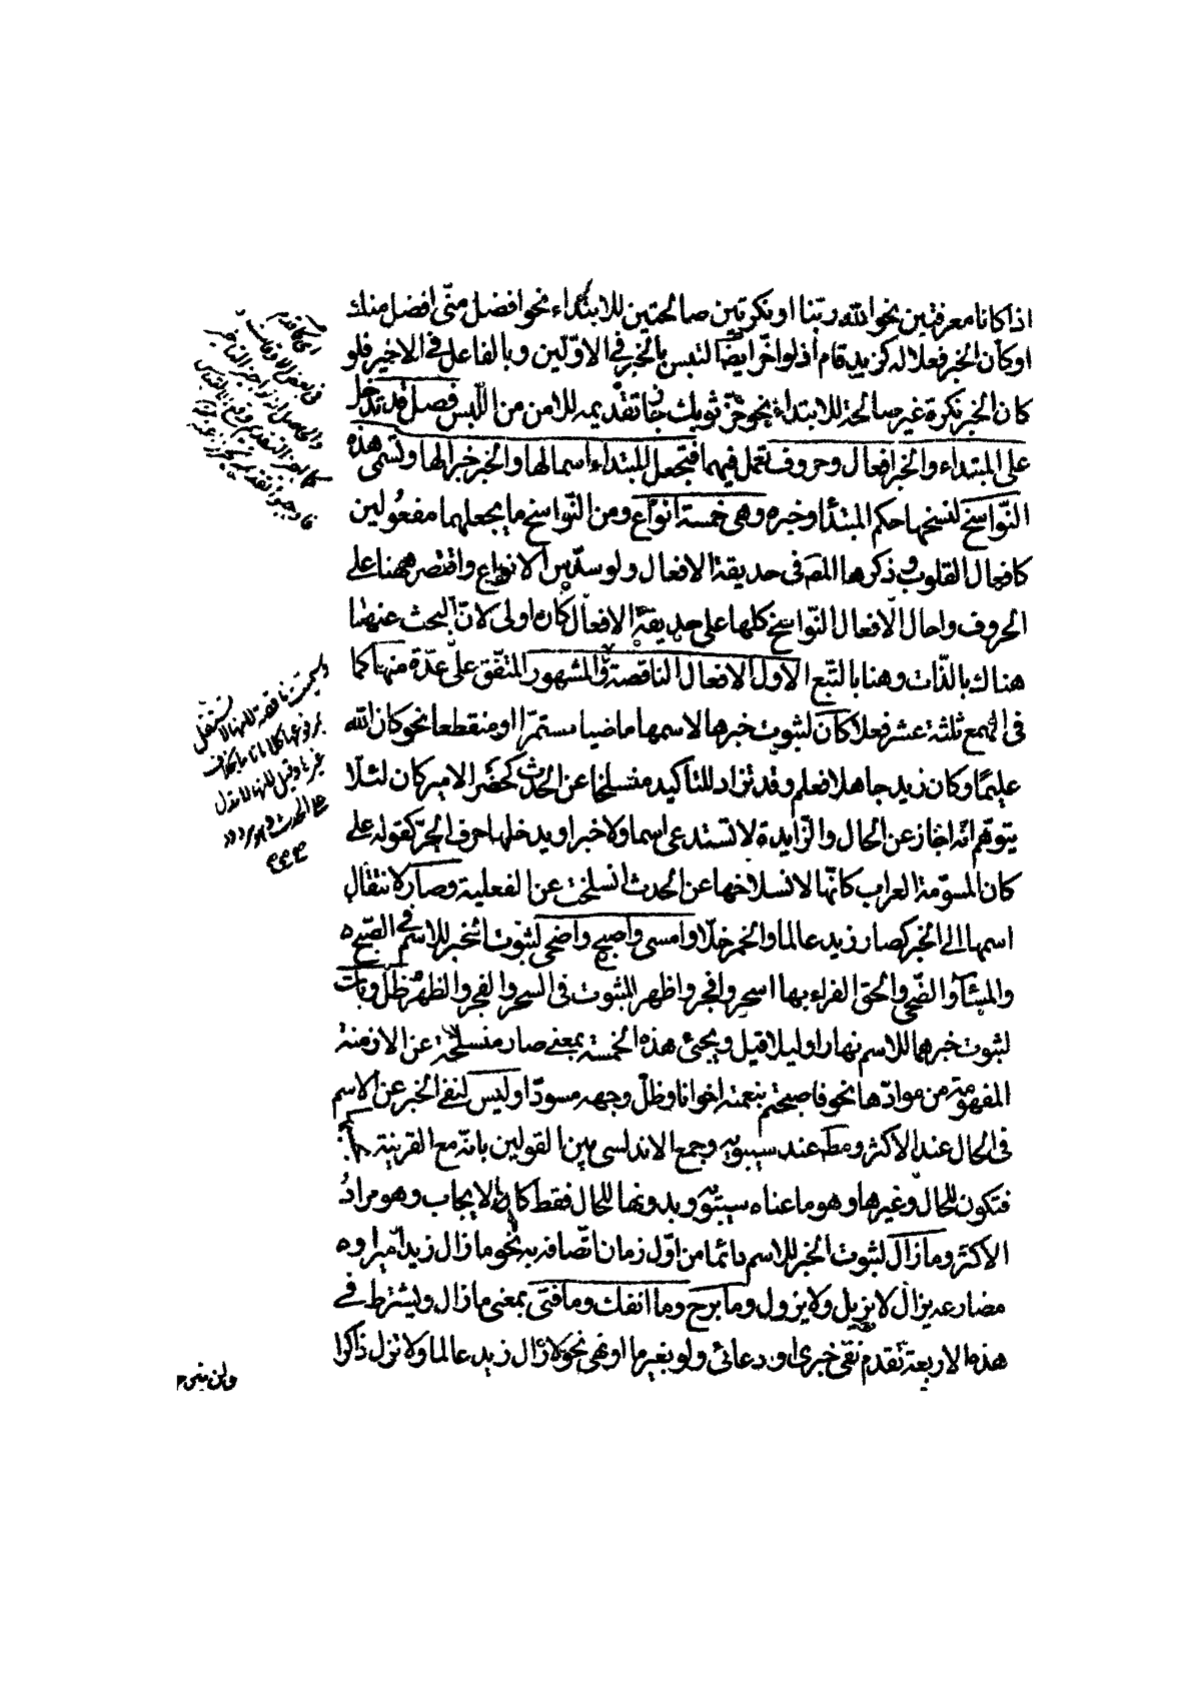 اذا كانا معرفتين نحو الله ربّنا او نكرتين صالحتين للابتداء نحو افضل منّى افضل منك
او كان الخبر فعلا له كزيد قام اذ لو اخّر ايضا التبس بالخبر فى الاوّلين و بالفاعل فى الاخير فلو
كان الخبر نكرة غير صالحة للابتداء نحو خزّ ثوبك جاز تقديمه للامن من اللّبس فصل قد تدخل
على المبتداء والخبر افعال وحروف تعمل فيهما فتجعل المبتداء اسما لها والخبر خبرا لها وتسمى هذه
النّواسخ لنسخها حكم المبتدأ وخبره وهى خمسة انواع ومن النّواسخ ما يجعلهما مفعولين
كافعال القلوب وذكرها المصـ فى حديقة الافعال ولو سدّس الانواع واقتصر ههنا على
الحروف واحال الافعال النّواسخ كلها على حديقة الافعال كان اولى لانّ البحث عنها
هناك بالذّات وهنا بالتّبع الاول الافعال الناقصة والمشهور المتّفق على عدّة منها كما
فى الهمع ثلثة عشر فعلا كان لثبوت خبرها لاسمها ماضيا مستمرّا او منقطعا نحو كان الله
عليمًا وكان زيد جاهلا فعلم وقد تزاد للتأكيد منسلخا عن الحدث كحضر الامير كان لئلّا
يتوهّم انّه اخاز عن الحال والزّايدة لا تستدعى اسما ولا خبرا ويدخلها حرف الجرّ كقوله على
كان المسوّمة العراب كانّها لانسلاخها عن الحدث انسلخت عن الفعلية وصار لانتقال
اسمها الى الخبر كصار زيد عالما والخمر خلّا وامسى واصبح واضحى لثبوت الخبر للاسم فى الصّبح
والمسآء والضّحى والحق الفراء بها اسحر وافجر واظهر للثبوت فى السحر والفجر والظهر وظلّ وبات
لثبوت خبرهما للاسم نهارا وليلا قيل ويجئ هذه الخمسة بمعنى صار منسلخة عن الازمنة
المفهومة من موادّها نحو فاصبحتم بنعمته اخوانا وظلّ وجهه مسودّا وليس لنفى الخبر عن الاسم
فى الحال عند الاكثر ومطـ عند سيبويه وجمع الاندلسى بين القولين بانّه مع القرينة
فتكون للحال وغيرها وهو ما عناه سيبويه وبدونها للحال فقط كالايجاب وهو مراد
الاكثر وما زال لثبوت الخبر للاسم دائما من اوّل زمان اتّصافه به نحو ما زال زيد اميرا و
مضارعه يزال لا يزيل ولا يزول وما برح وما انفك وما فتئ بمعنى ما زال ويشترط فى
هذه الاربعة تقدم نفى خبرى او دعائى ولو بغير ما او نهى نحو لا زال زيد عالما ولا تزل ذاكرا
وسميت ناقصة لانها لا تستقل
بمرفوعها كلاما تاما بخلاف
غيرها وقيل لانها لا تدل
على الحدث وهو مردود